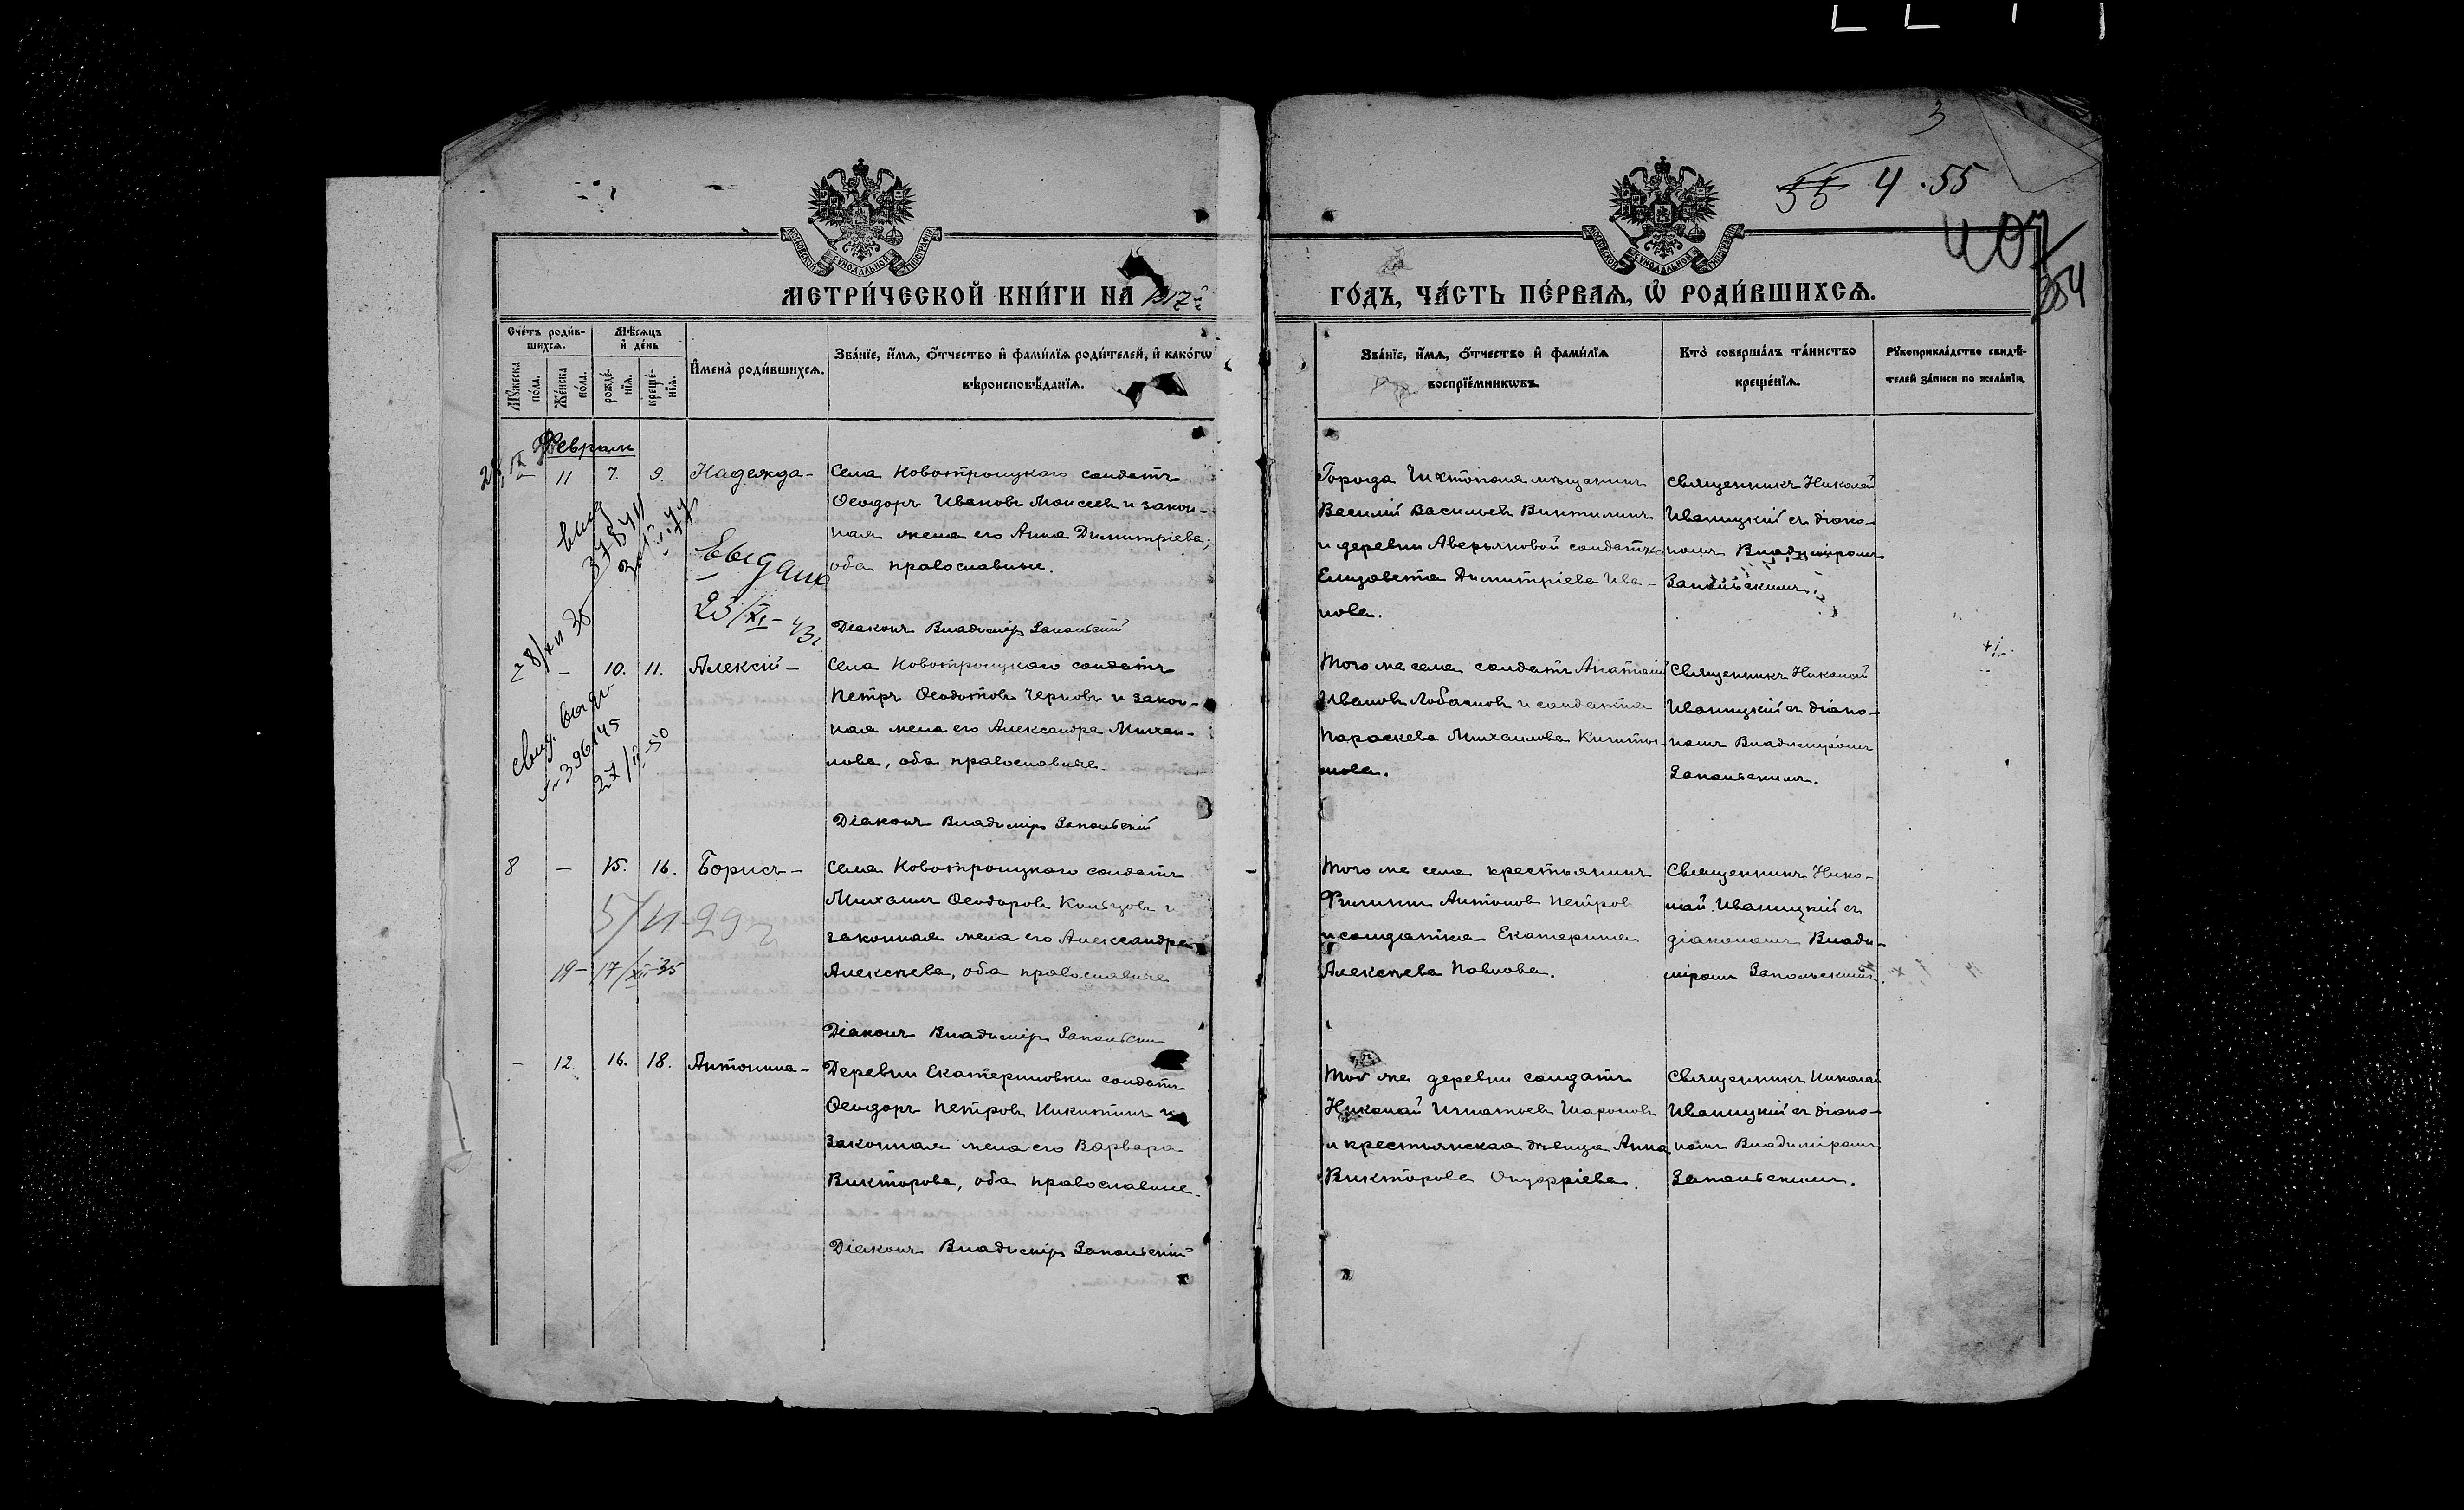 3
55 4.55
407
354
МОСКОВСКОЙ СѴНОДАЛЬНОЙ ТИПОГРАФІИ
МОСКОВСКОЙ СѴНОДАЛЬНОЙ ТИПОГРАФІИ
МЕТРИ́ЧЕСКОЙ КНИ́ГИ НА 1917й
ГО́ДЪ, ЧА́СТЬ ПЕ́РВАѦ, Ѡ҆ РОДИ́ВШИХСѦ.
Сче́тъ роди́в-
шихсѧ.
Мꙋ́жеска по́ла.
Же́нска по́ла.
Мѣ́сѧцъ
и҆ де́нь
рожде́-
нїѧ.
креще́-
нїѧ.
И҆мена̀ роди́вшихсѧ.
Зва́нїе, и҆́мѧ, ѻ҆́тчество и҆ фами́лїѧ роди́телей, и҆ како́гѡ
вѣроисповѣ́данїѧ.
Зва́нїе, и҆́мѧ, ѻ҆́тчество и҆ фами́лїѧ
воспрїе́мникѡвъ.
Кто̀ соверша́лъ та́инство
креще́нїѧ.
Рꙋкоприкла́дство свидѣ́-
телей за́писи по жела́нїю.
Февраль
11 7. 9. Надежда-
Села Новотроицкаго солдатъ
Ѳеодоръ Ивановъ Моисеев и закон-
ная жена его Анна Димитріева,
оба православные.
Діаконъ Владиміръ Запольскій
Города Чистополя мѣщанинъ
Василій Васильевъ Винтилинъ
и деревни Аверьяновой солдатка
Елизавета Димитріева Ива-
нова.
Священникъ Николай
Иваницкій съ діако-
номъ Владиміромъ
Запольскимъ.
выд
378411
Выдан
23/XI-43г
28/XII 36
- 10. 11. Алексій-
Села Новотроицкаго солдатъ
Петръ Ѳеодотовъ Черновъ и закон-
ная жена его Александра Михаи-
лова, оба православные.
Діаконъ Владиміръ Запольскій
Того же села солдатъ Анатолій
Ивановъ Лобановъ и солдатка
Параскева Михаилова
нова.
Священникъ Николай
Иваницкій съ діако-
номъ Владиміромъ
Запольскимъ.
свид. выдан
№ 396145
27/II-50
8 - 15. 16. Борисъ-
Села Новотроицкаго солдатъ
Михаилъ Ѳеодоровъ Кольцовъ и
законная жена его Александра
Алексѣева, оба православные
Діаконъ Владиміръ Запольскій
Того же села крестьянинъ
Филиппъ Антоновъ Петров
и солдатка Екатерина
Алексѣева Павлова.
Священникъ Нико-
лай Иваницкій съ
діакономъ Влади-
міромъ Запольскимъ.
5/VI-29г
19-17/XII-35
- 12. 16. 18. Антонина-
Деревни Екатериновки солдатъ
Ѳеодоръ Петровъ Никитинъ и
законная жена его Варвара
Викторова, оба православные.
Діаконъ Владиміръ Запольскій
Той же деревни солдатъ
Николай Игнатьевъ Шароновъ
и крестьянская дѣвица Анна
Викторова Онуфріева.
Священникъ Николай
Иваницкій съ діако-
номъ Владиміромъ
Запольскимъ.